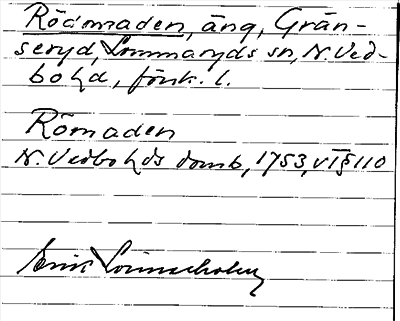 Rödmaden, äng, Grän-
seryd, Lommaryds sn, N. Ved-
bo hd, Jönk. l.
Römaden
N. Vedbo hds domb, 1753, VI § 110